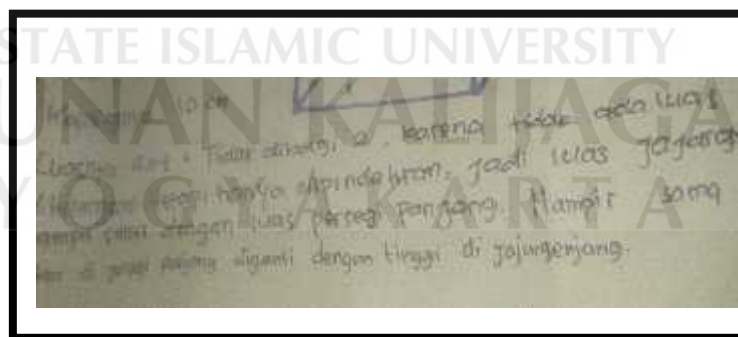 STATE ISLAMIC UNIVERSITY
SUNAN KALIJAGA
YOGYAKARTA
10 cm
Luasnya a x t. Tidak dibagi 2, karena tidak ada luas
tetapi hanya dipindahkan, jadi luas jajargenjang
sama dengan luas persegi panjang. Hampir sama
di persegi panjang diganti dengan tinggi di jajargenjang.